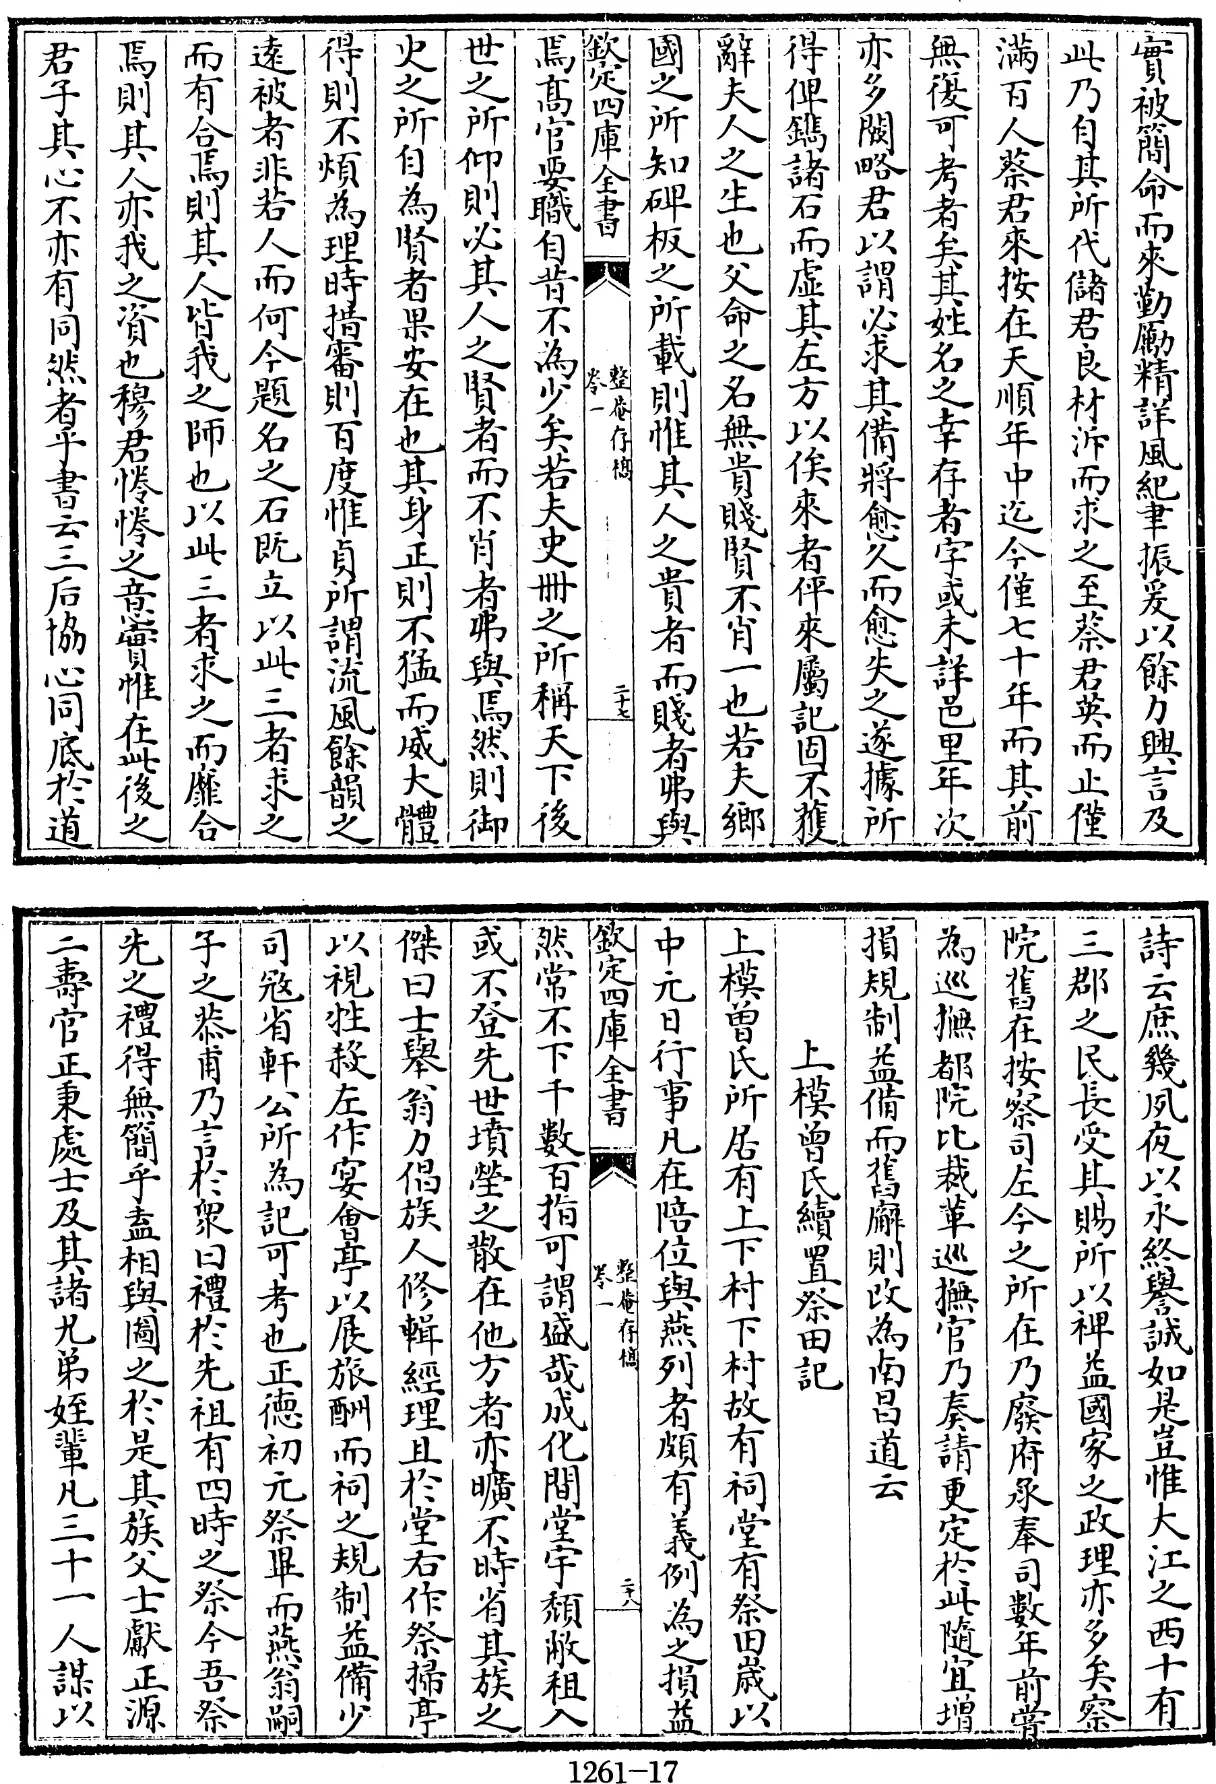 實被簡命而來勤勵精詳風紀聿振爰以餘力興言及
此乃自其所代儲君良材泝而求之至蔡君英而止僅
滿百人蔡君來按在天順年中迄今僅七十年而其前
無復可考者矣其姓名之幸存者字或未詳邑里年次
亦多闕略君以謂必求其備將愈久而愈失之遂據所
得俾鐫諸石而虛其左方以俟來者伻來屬記固不獲
辭夫人之生也父命之名無貴賤賢不肖一也若夫鄉
國之所知碑板之所載則惟其人之貴者而賤者弗與
欽定四庫全書
整菴存稿
卷一
二十七
焉高官要職自昔不為少矣若夫史冊之所稱天下後
世之所仰則必其人之賢者而不肖者弗與焉然則御
史之所自為賢者果安在也其身正則不猛而威大體
得則不煩為理時措審則百度惟貞所謂流風餘韻之
遠被者非若人而何今題名之石既立以此三者求之
而有合焉則其人皆我之師也以此三者求之而靡合
焉則其人亦我之資也穆君惓惓之意實惟在此後之
君子其心不亦有同然者乎書云三后協心同底於道
詩云庶幾夙夜以永終譽誠如是豈惟大江之西十有
三郡之民長受其賜所以裨益國家之政理亦多矣察
院舊在按察司左今之所在乃廢府承奉司數年前嘗
為巡撫都院比裁革巡撫官乃奏請更定於此隨宜增
損規制益備而舊廨則改為南昌道云
上模曽氏續置祭田記
上模曽氏所居有上下村下村故有祠堂有祭田歲以
中元日行事凡在陪位與燕列者頗有義例為之損益
欽定四庫全書
整菴存稿
卷一
二十八
然常不下千數百指可謂盛哉成化間堂宇頹敝租入
或不登先世墳塋之散在他方者亦曠不時省其族之
傑曰士舉翁力倡族人修輯經理且於堂右作祭掃亭
以視牲殺左作宴會亭以展旅酬而祠之規制益備少
司寇省軒公所為記可考也正德初元祭畢而燕翁嗣
子之恭甫乃言於衆曰禮於先祖有四時之祭今吾祭
先之禮得無簡乎盍相與圖之於是其族父士獻正源
二壽官正秉處士及其諸兄弟姪輩凡三十一人謀以
1261—17